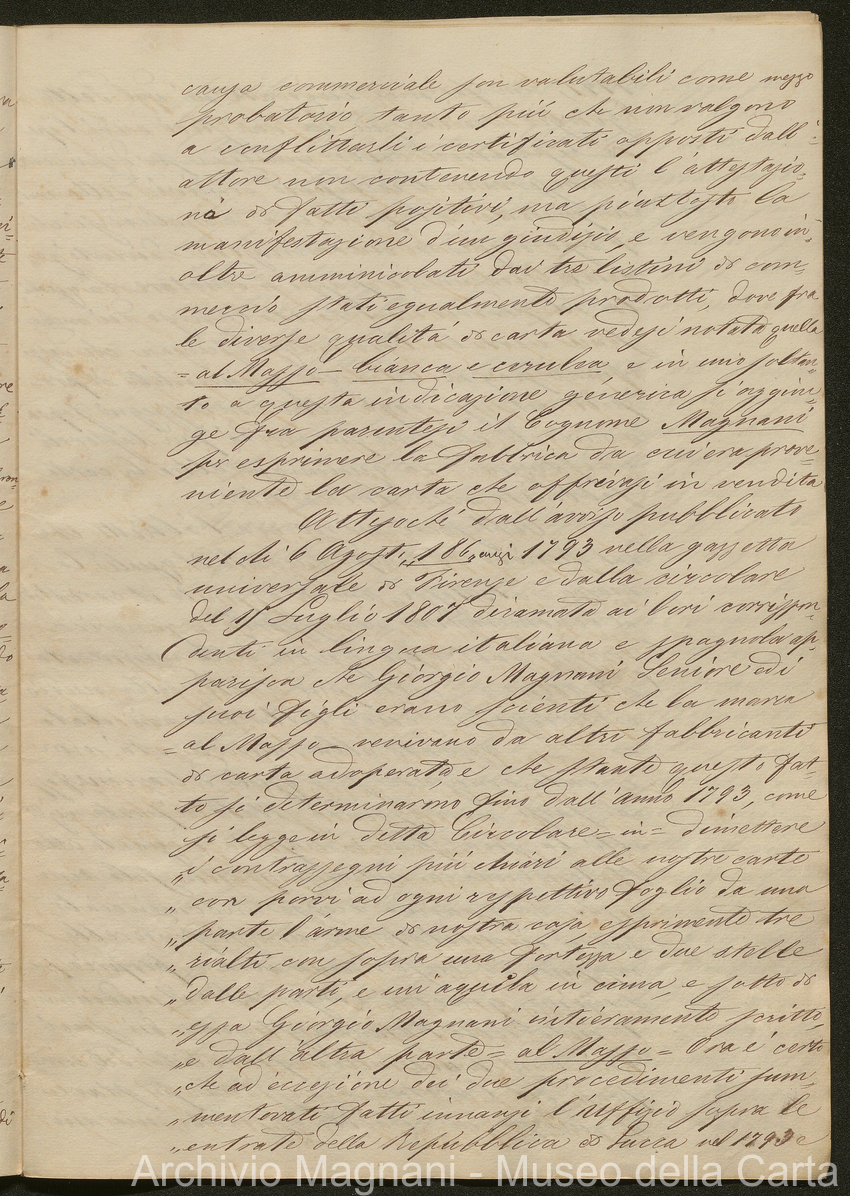 causa commerciale son valutabili come mezzo
probatorio tanto più che non valgono
a conflittarli i certificati opposti dall'=
attore non contenendo questi l'attestazio=
ne di fatti positivi, ma piuttosto la
manifestazione d'un giudizio, e vengono in=
oltre amminicolati dai tre listini di com=
mercio stati egualmente prodotti, dove fra
le diverse qualità di carta vedesi notata quella
= al Masso - bianca e cerulea e in uno soltan=
to a questa indicazione generica si aggiun=
ge fra parentesi il Cognome Magnani
per esprimere la fabbrica da cui era prove=
niente la carta che offrivasi in vendita
Attesochè dall'avviso pubblicato
nel dì 6 Agosto, 186, anzi 1793 nella gazzetta
universale di Firenze e dalla circolare
del 15 Luglio 1807 diramata ai lori corrispon=
denti in lingua italiana e spagnola ap=
parisca che Giorgio Magnani Seniore ed i
suoi figli erano scienti che la marca
= al Masso - venivano da altri fabbricanti
di carta adoperata, e che stante questo fat=
to si determinarono fino dall'anno 1793, come
si legge in detta Circolare = in = dimettere
„ i contrassegni più chiari alle nostre carte
„ con porvi ad ogni respettivo foglio da una
„ parte l'arme di nostra casa, esprimente tre
„ rialti con sopra una fortezza e due stelle
„ dalle parti, e un'aquila in cima, e sotto di
„ essa Giorgio Magnani intieramente scritto,
„ e dall'altra parte = al Masso = Ora è certo
„ che ad eccezione dei due procedimenti sum=
„ mentovati fatti innanzi l'Uffizio sopra le
„ entrate della Repubblica di Lucca nel 1793 e
Archivio Magnani - Museo della Carta